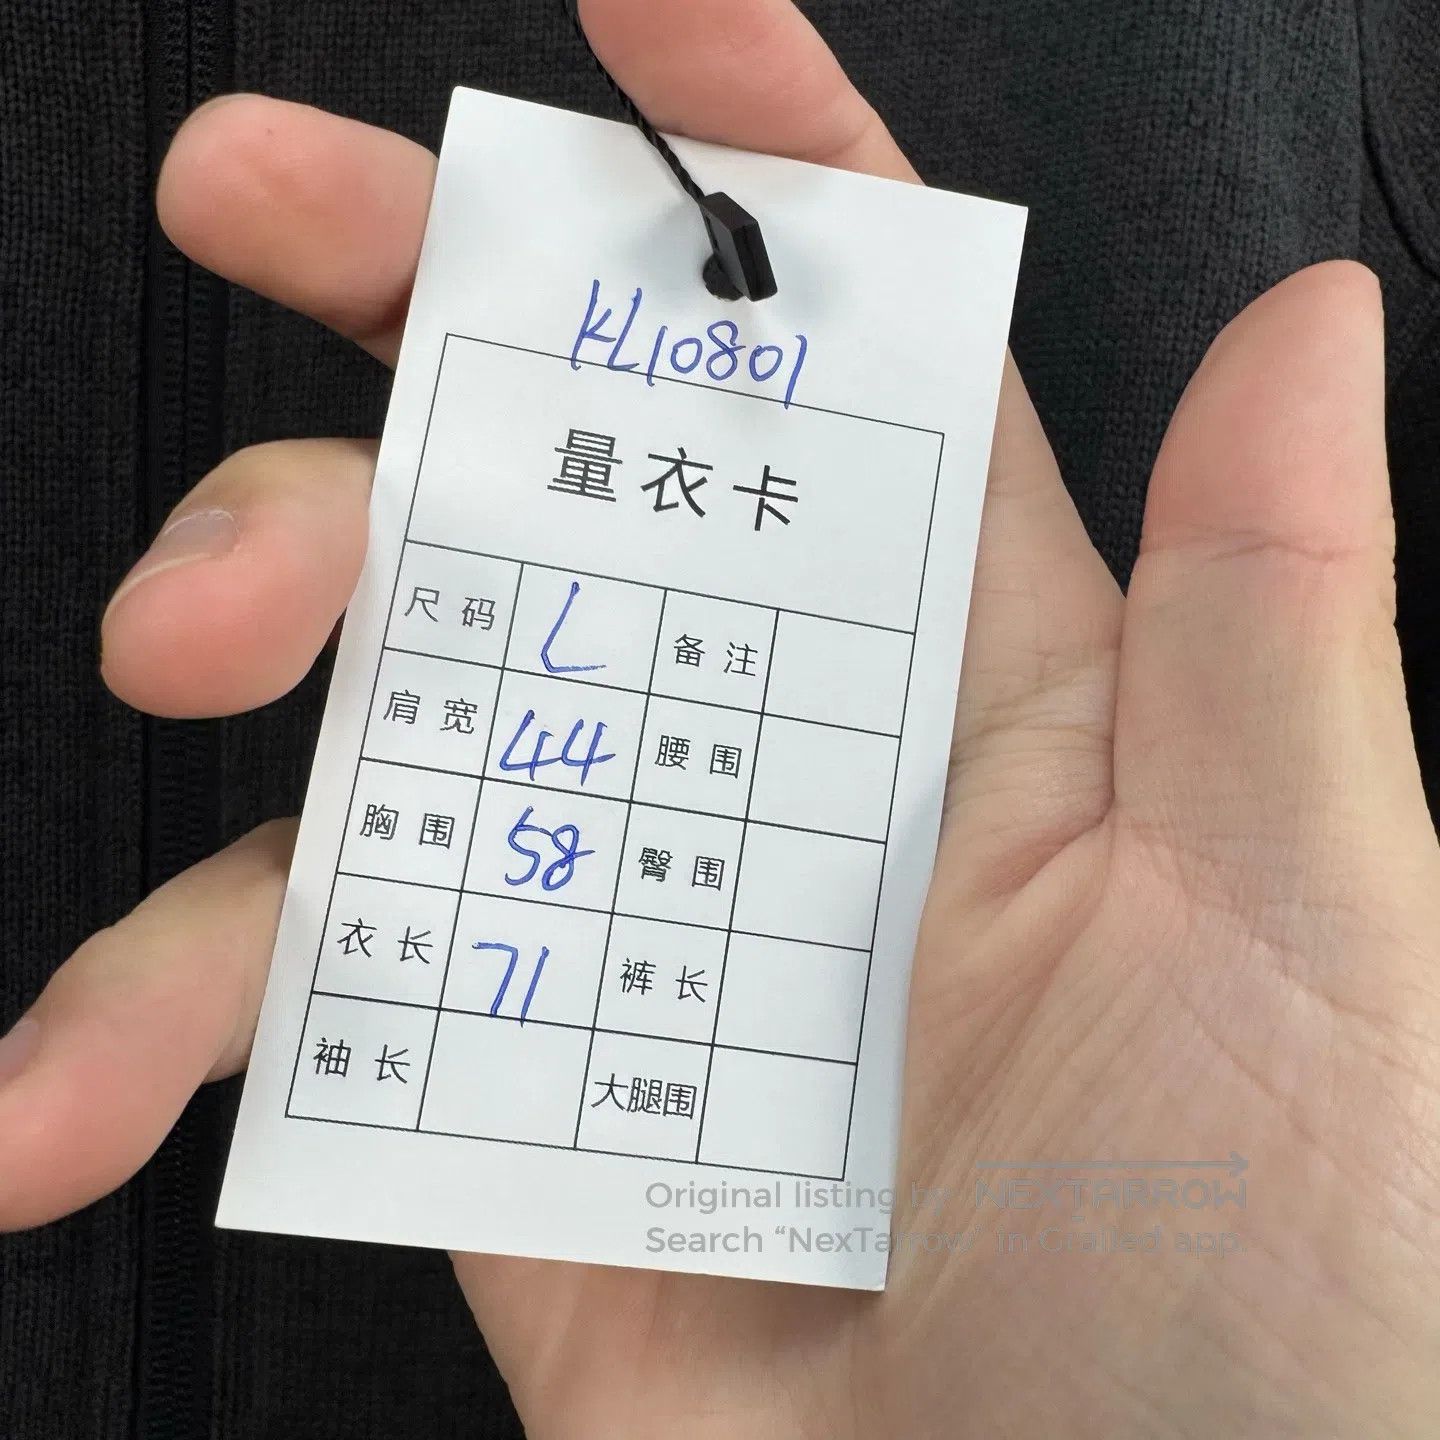 KL10801
量衣卡
尺码 L 备注
肩宽 44 腰围
胸围 58 臀围
衣长 71 裤长
袖长 大腿围
Original listing by NEXTARROW
Search “NexTarrow” in Grailed app.